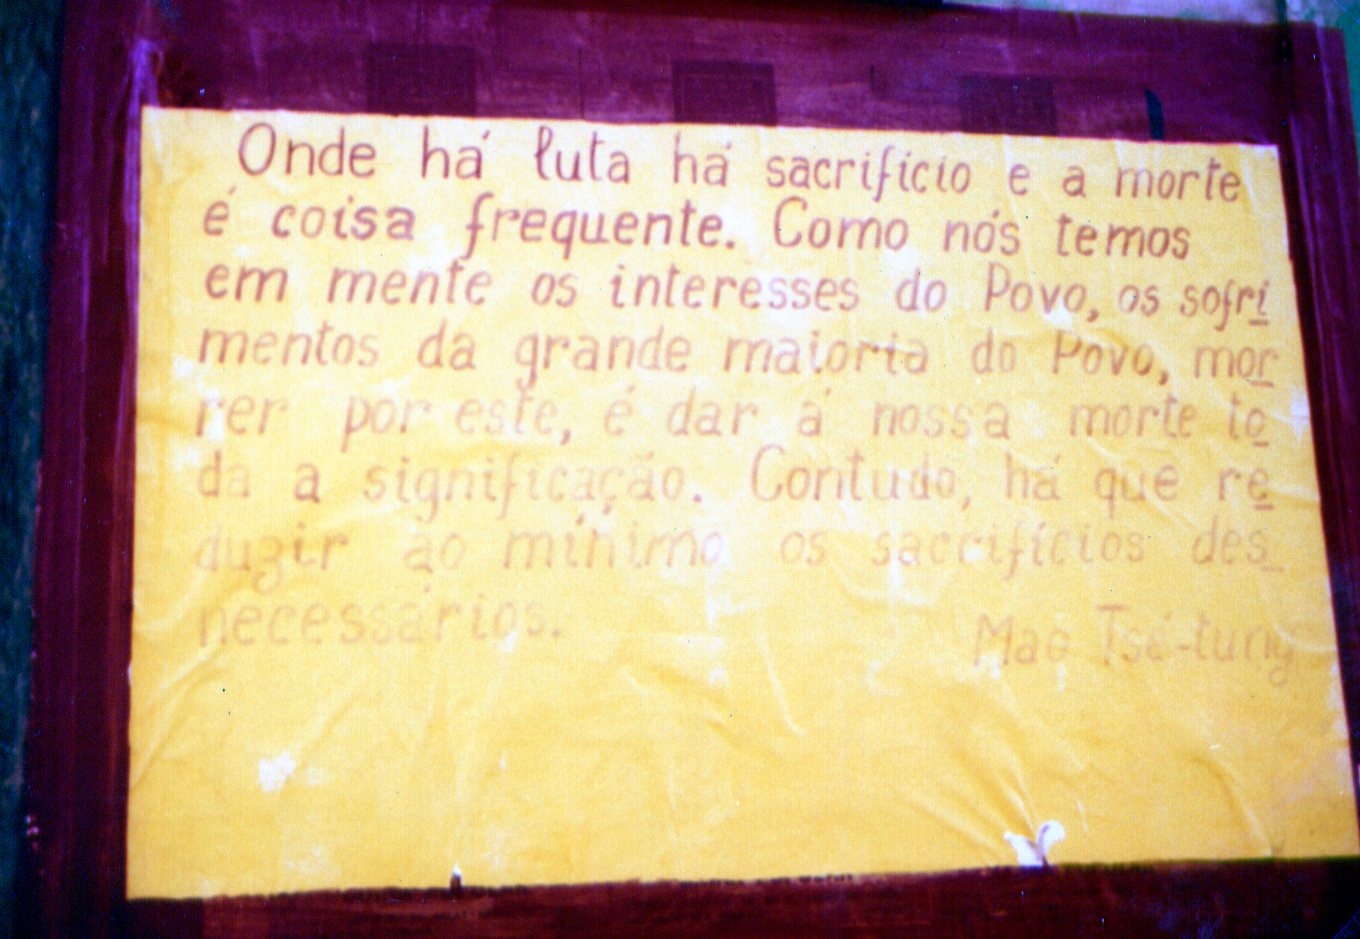 Onde há luta há sacrifício e a morte
é coisa frequente. Como nós temos
em mente os interesses do Povo, os sofri
mentos da grande maioria do Povo, mor
rer por este, é dar á nossa morte to
da a significação. Contudo, há que re
duzir ao mínimo os sacrifícios des
necessários.
Mao Tsé-tung